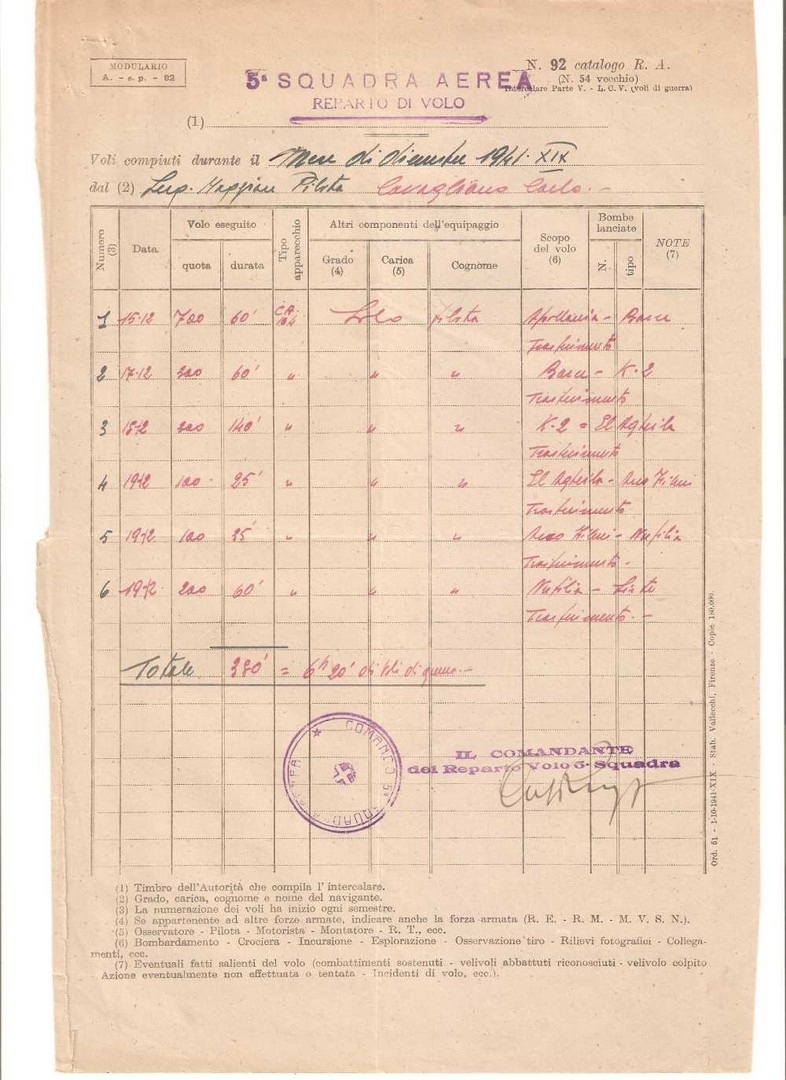 MODULARIO
A. - s. p. - 82
N. 92 catalogo R. A.
(N. 54 vecchio)
Intercalare Parte V. - L. C. V. (voli di guerra)
5ª SQUADRA AEREA
REPARTO DI VOLO
(1)
Voli compiuti durante il Mese di dicembre 1941-XIX
dal (2) Serg. Maggiore Pilota Cavagliano Carlo.-
Numero (3) Data Volo eseguito Tipo apparecchio Altri componenti dell'equipaggio Scopo del volo (6) Bombe lanciate NOTE (7)
quota durata Grado (4) Carica (5) Cognome N. tipo
1 15-12 700 60' CA. 164 Solo pilota Apollonia - Barce
Trasferimento
2 17-12 300 60' " " " Barce - K-2
Trasferimento
3 140' " " " K-2 = El Agheila
Trasferimento
4 19-12 100 25' " " " El Agheila - Arco Fileni
Trasferimento
5 19-12 100 35' " " " Arco Fileni - Nufilia
Trasferimento -
6 19-12 200 60' " " " Nufilia - Sirte
Trasferimento. -
Totale 380' = 6h 20' di voli di guerra.-
COMANDO 5ª SQUADRA AEREA
IL COMANDANTE
del Reparto Volo 5ª Squadra
(1) Timbro dell'Autorità che compila l' intercalare.
(2) Grado, carica, cognome e nome del navigante.
(3) La numerazione dei voli ha inizio ogni semestre.
(4) Se appartenente ad altre forze armate, indicare anche la forza armata (R. E. - R. M. - M. V. S. N.).
(5) Osservatore - Pilota - Motorista - Montatore - R. T., ecc.
(6) Bombardamento - Crociera - Incursione - Esplorazione - Osservazione tiro - Rilievi fotografici - Collegamenti, ecc.
(7) Eventuali fatti salienti del volo (combattimenti sostenuti - velivoli abbattuti riconosciuti - velivolo colpito
Azione eventualmente non effettuata o tentata - Incidenti di volo, ecc.).
Ord. 51 - 1-10-1941-XIX - Stab. Vallecchi, Firenze - Copie 180.000.